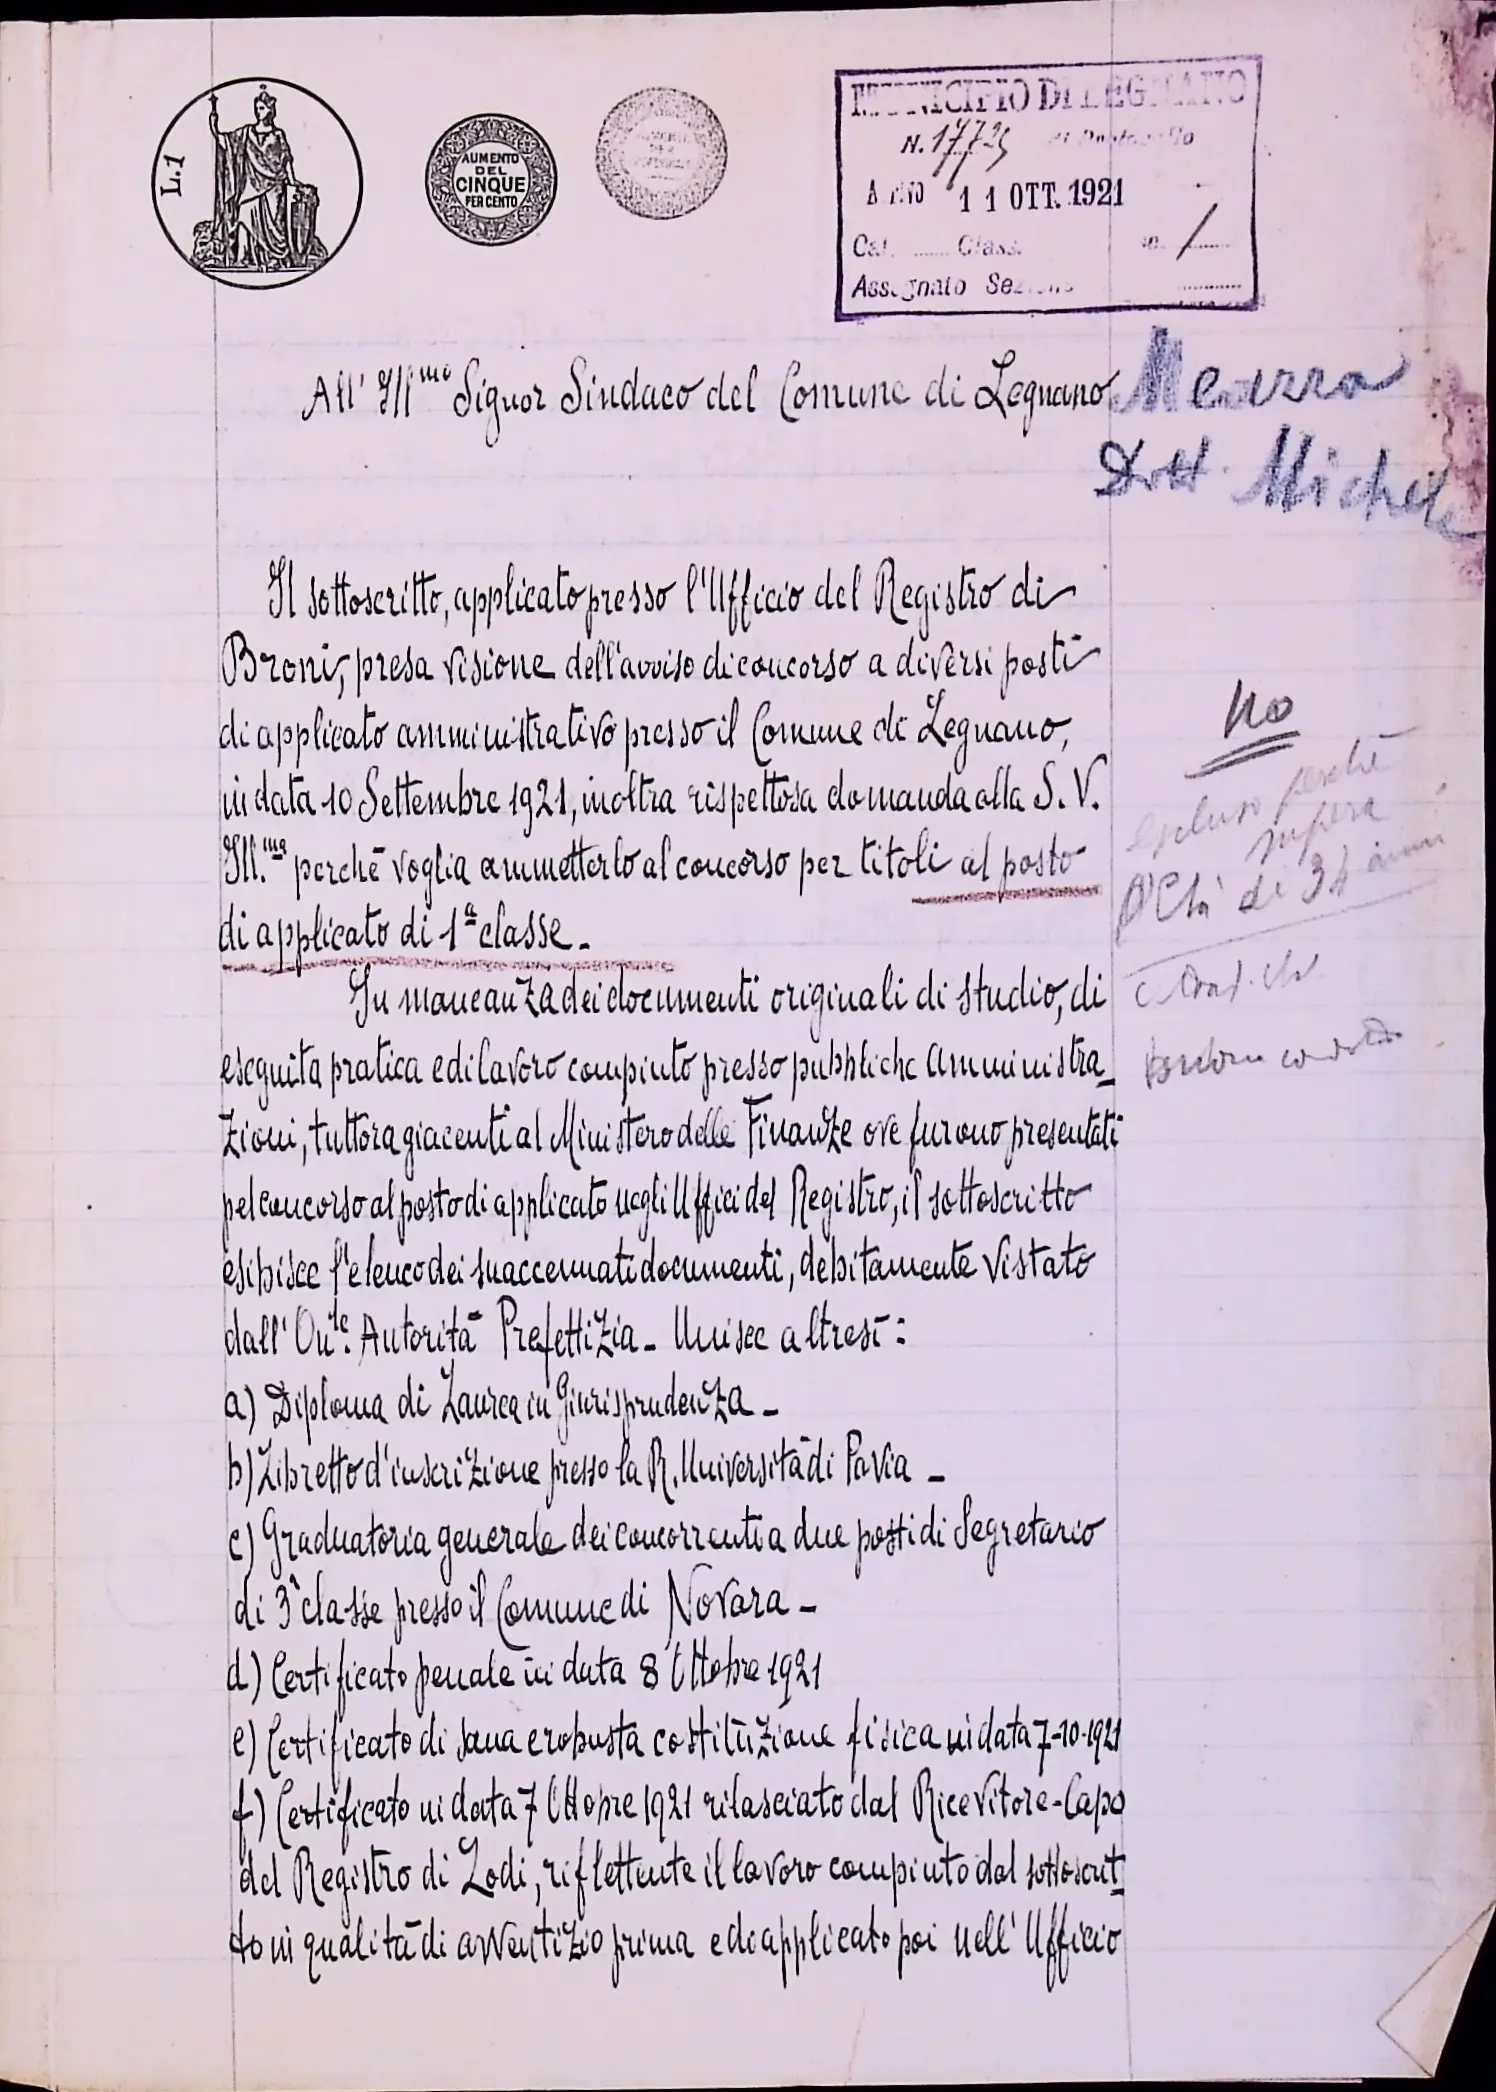 L.1
AUMENTO
DEL
CINQUE
PER CENTO
MUNICIPIO DI LEGNANO
N. 17725 di Protocollo
ANNO 11 OTT. 1921
Cat. ...... Class.
Assegnato Sezione
All' Ill.mo Signor Sindaco del Comune di Legnano
Mearza
Dott. Michele
Il sottoscritto, applicato presso l'Ufficio del Registro di
Broni, presa visione dell'avviso di concorso a diversi posti
di applicato amministrativo presso il Comune di Legnano,
in data 10 Settembre 1921, inoltra rispettosa domanda alla S. V.
Ill.ma perchè voglia ammetterlo al concorso per titoli al posto
di applicato di 1ª classe.
no
escluso perchè
supera
età di 34 anni
In mancanza dei documenti originali di studio, di
eseguita pratica e di lavoro compiuto presso pubbliche Amministra_
zioni, tuttora giacenti al Ministero delle Finanze ove furono presentati
pel concorso al posto di applicato negli Uffici del Registro, il sottoscritto
esibisce l'elenco dei suaccennati documenti, debitamente vistato
dall' On.le Autorità Prefettizia_ Unisce altresì:
a) Diploma di Laurea in Giurisprudenza_
b) Libretto d'inscrizione presso la R. Università di Pavia_
c) Graduatoria generale dei concorrenti a due posti di Segretario
di 3ª classe presso il Comune di Novara_
d) Certificato penale in data 8 Ottobre 1921
e) Certificato di sana e robusta costituzione fisica in data 7-10-1921
f) Certificato in data 7 Ottobre 1921 rilasciato dal Ricevitore-Capo
del Registro di Lodi, riflettente il lavoro compiuto dal sottoscrit_
to in qualità di avventizio prima e di applicato poi nell' Ufficio